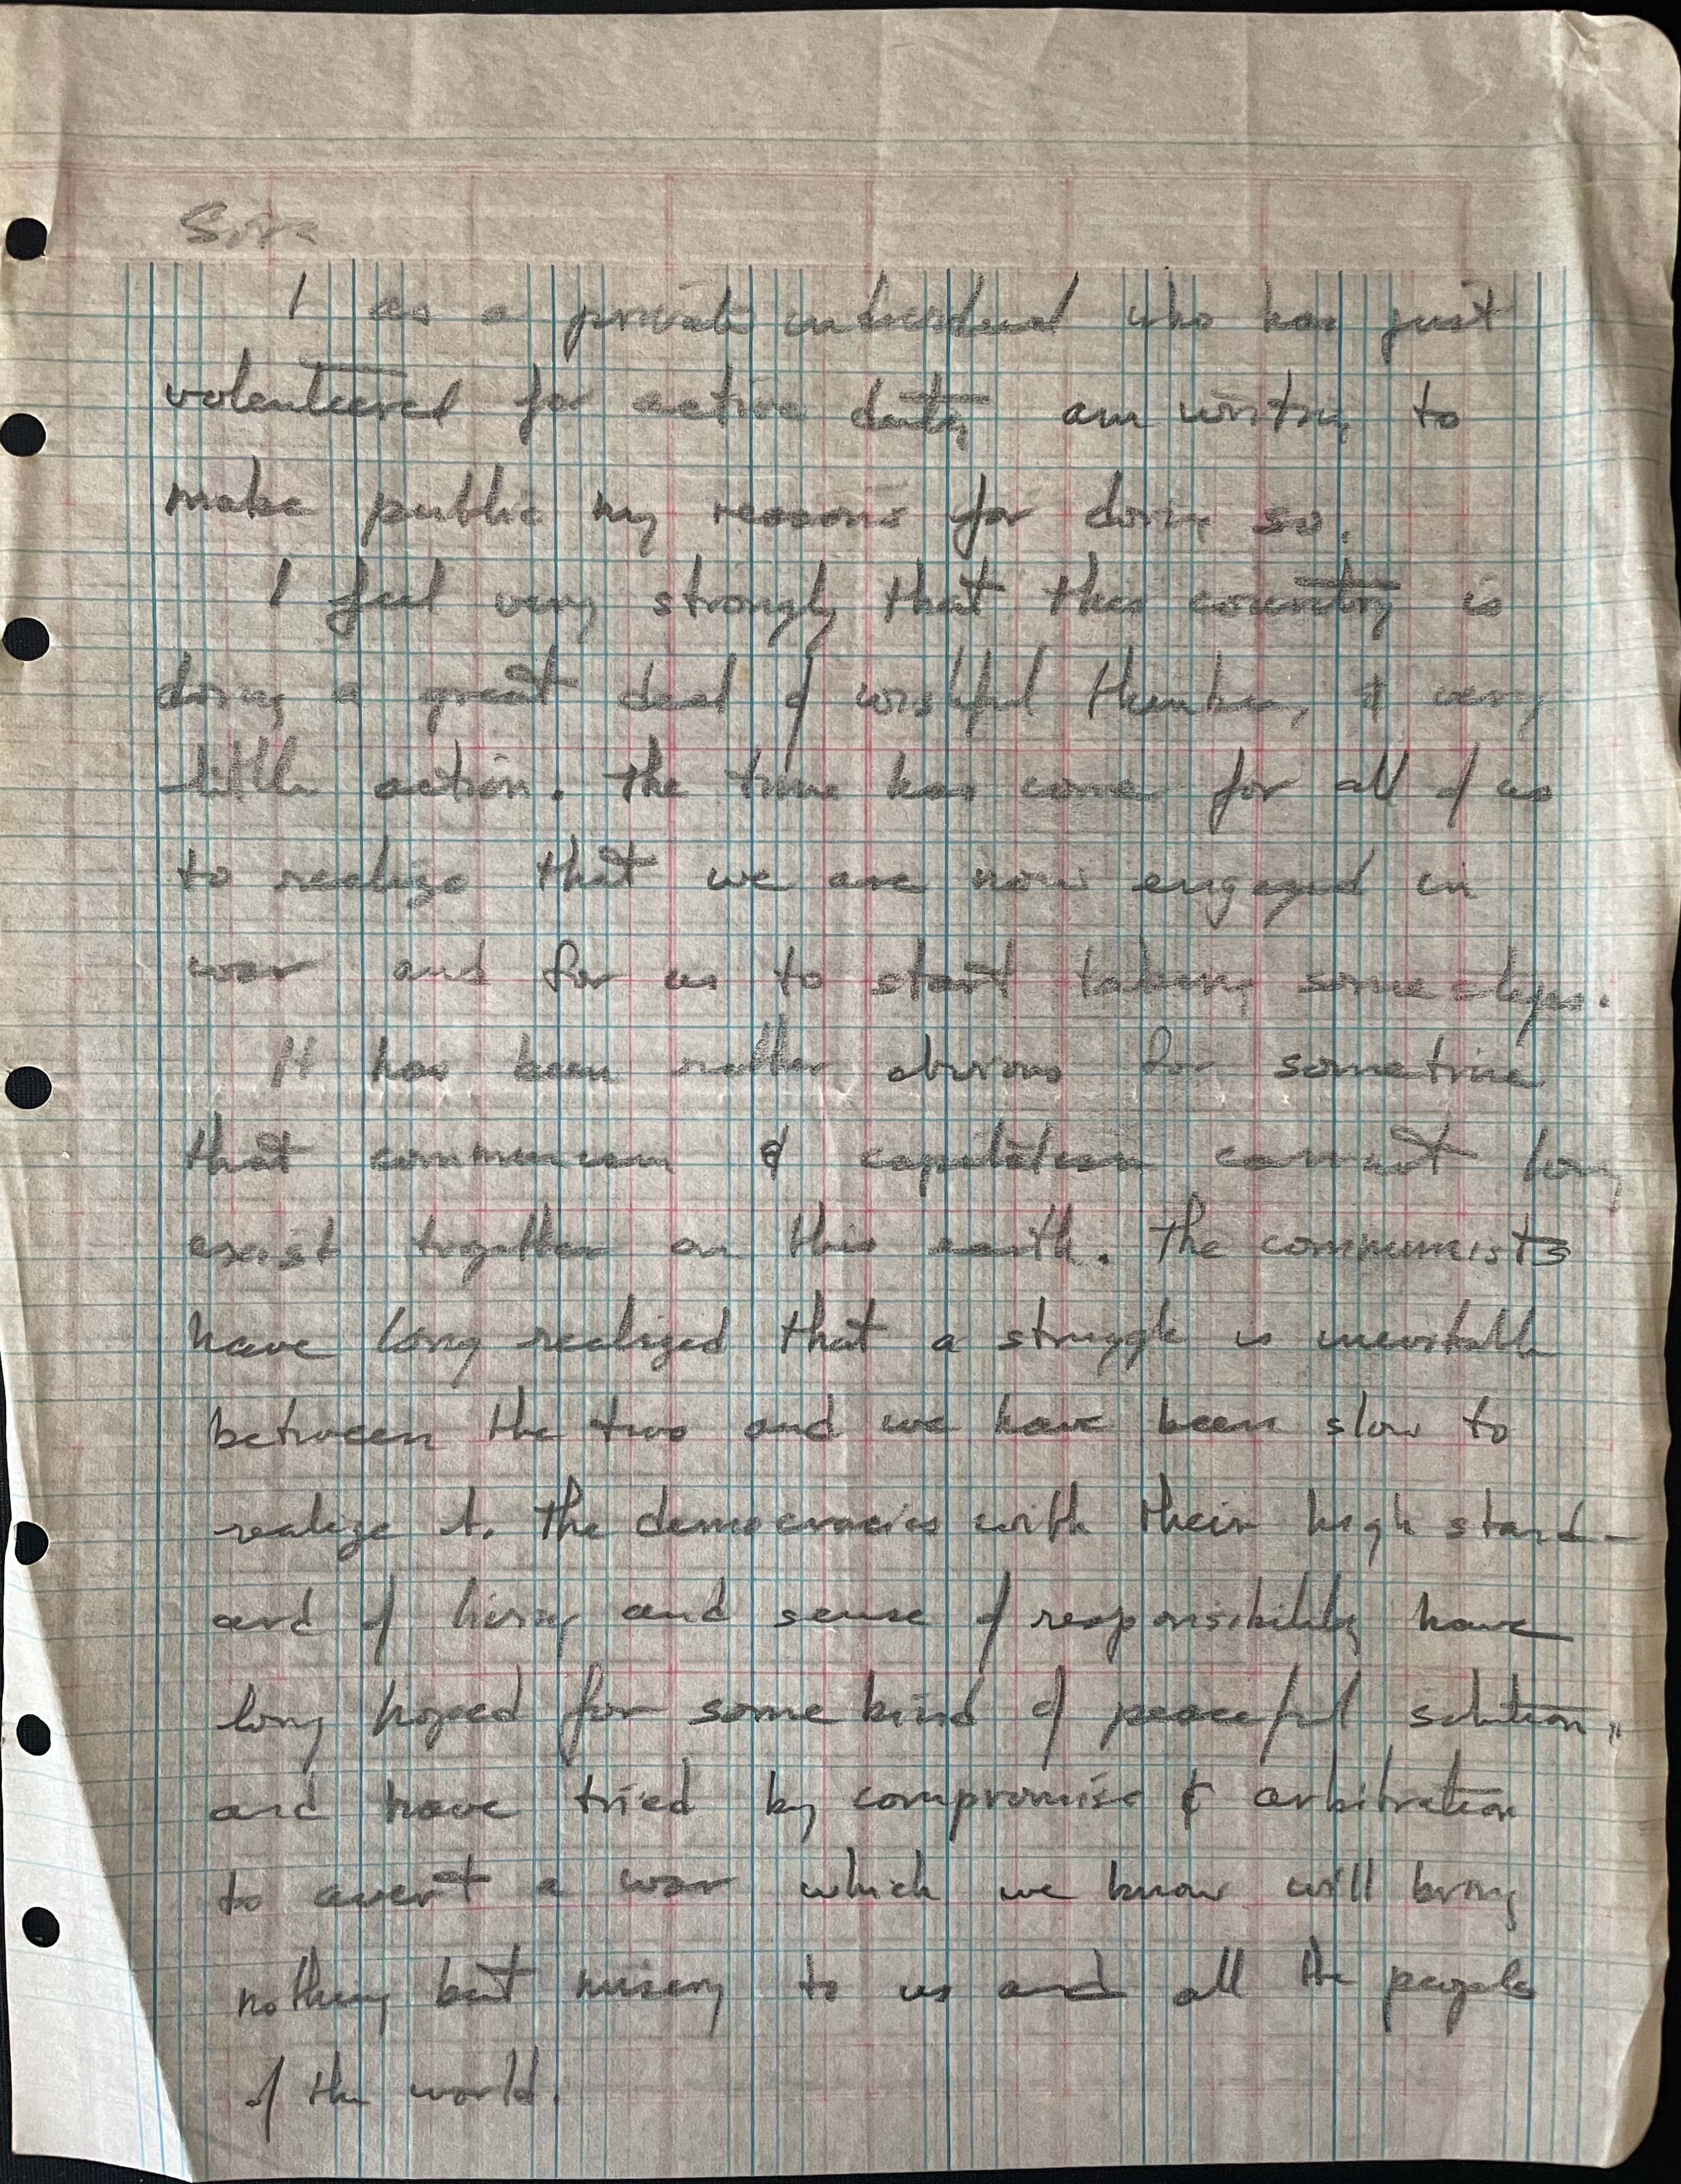 Sirs
I as a private individual who has just
volunteered for active duty am writing to
make public my reasons for doing so.
I feel very strongly that this country is
doing a great deal of wishful thinking & very
little action. The time has come for all of us
to realize that we are now engaged in
war and for us to start taking some steps.
It has been rather obvious for sometime
that communism & capitalism cannot long
exist together on this earth. The communists
have long realized that a struggle is inevitable
between the two and we have been slow to
realize it. The democracies with their high stand-
ard of living and sense of responsibility have
long hoped for some kind of peaceful solution,
and have tried by compromise & arbitration
to avert a war which we know will bring
nothing but misery to us and all the people
of the world.